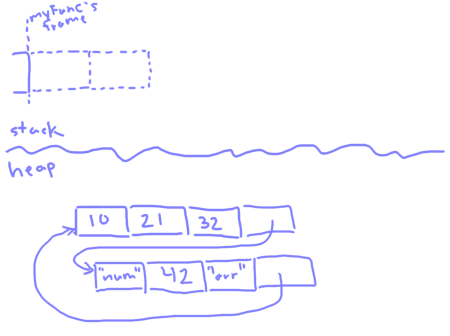 myFunc's
frame
stack
heap
10 21 32
"num" 42 "arr"